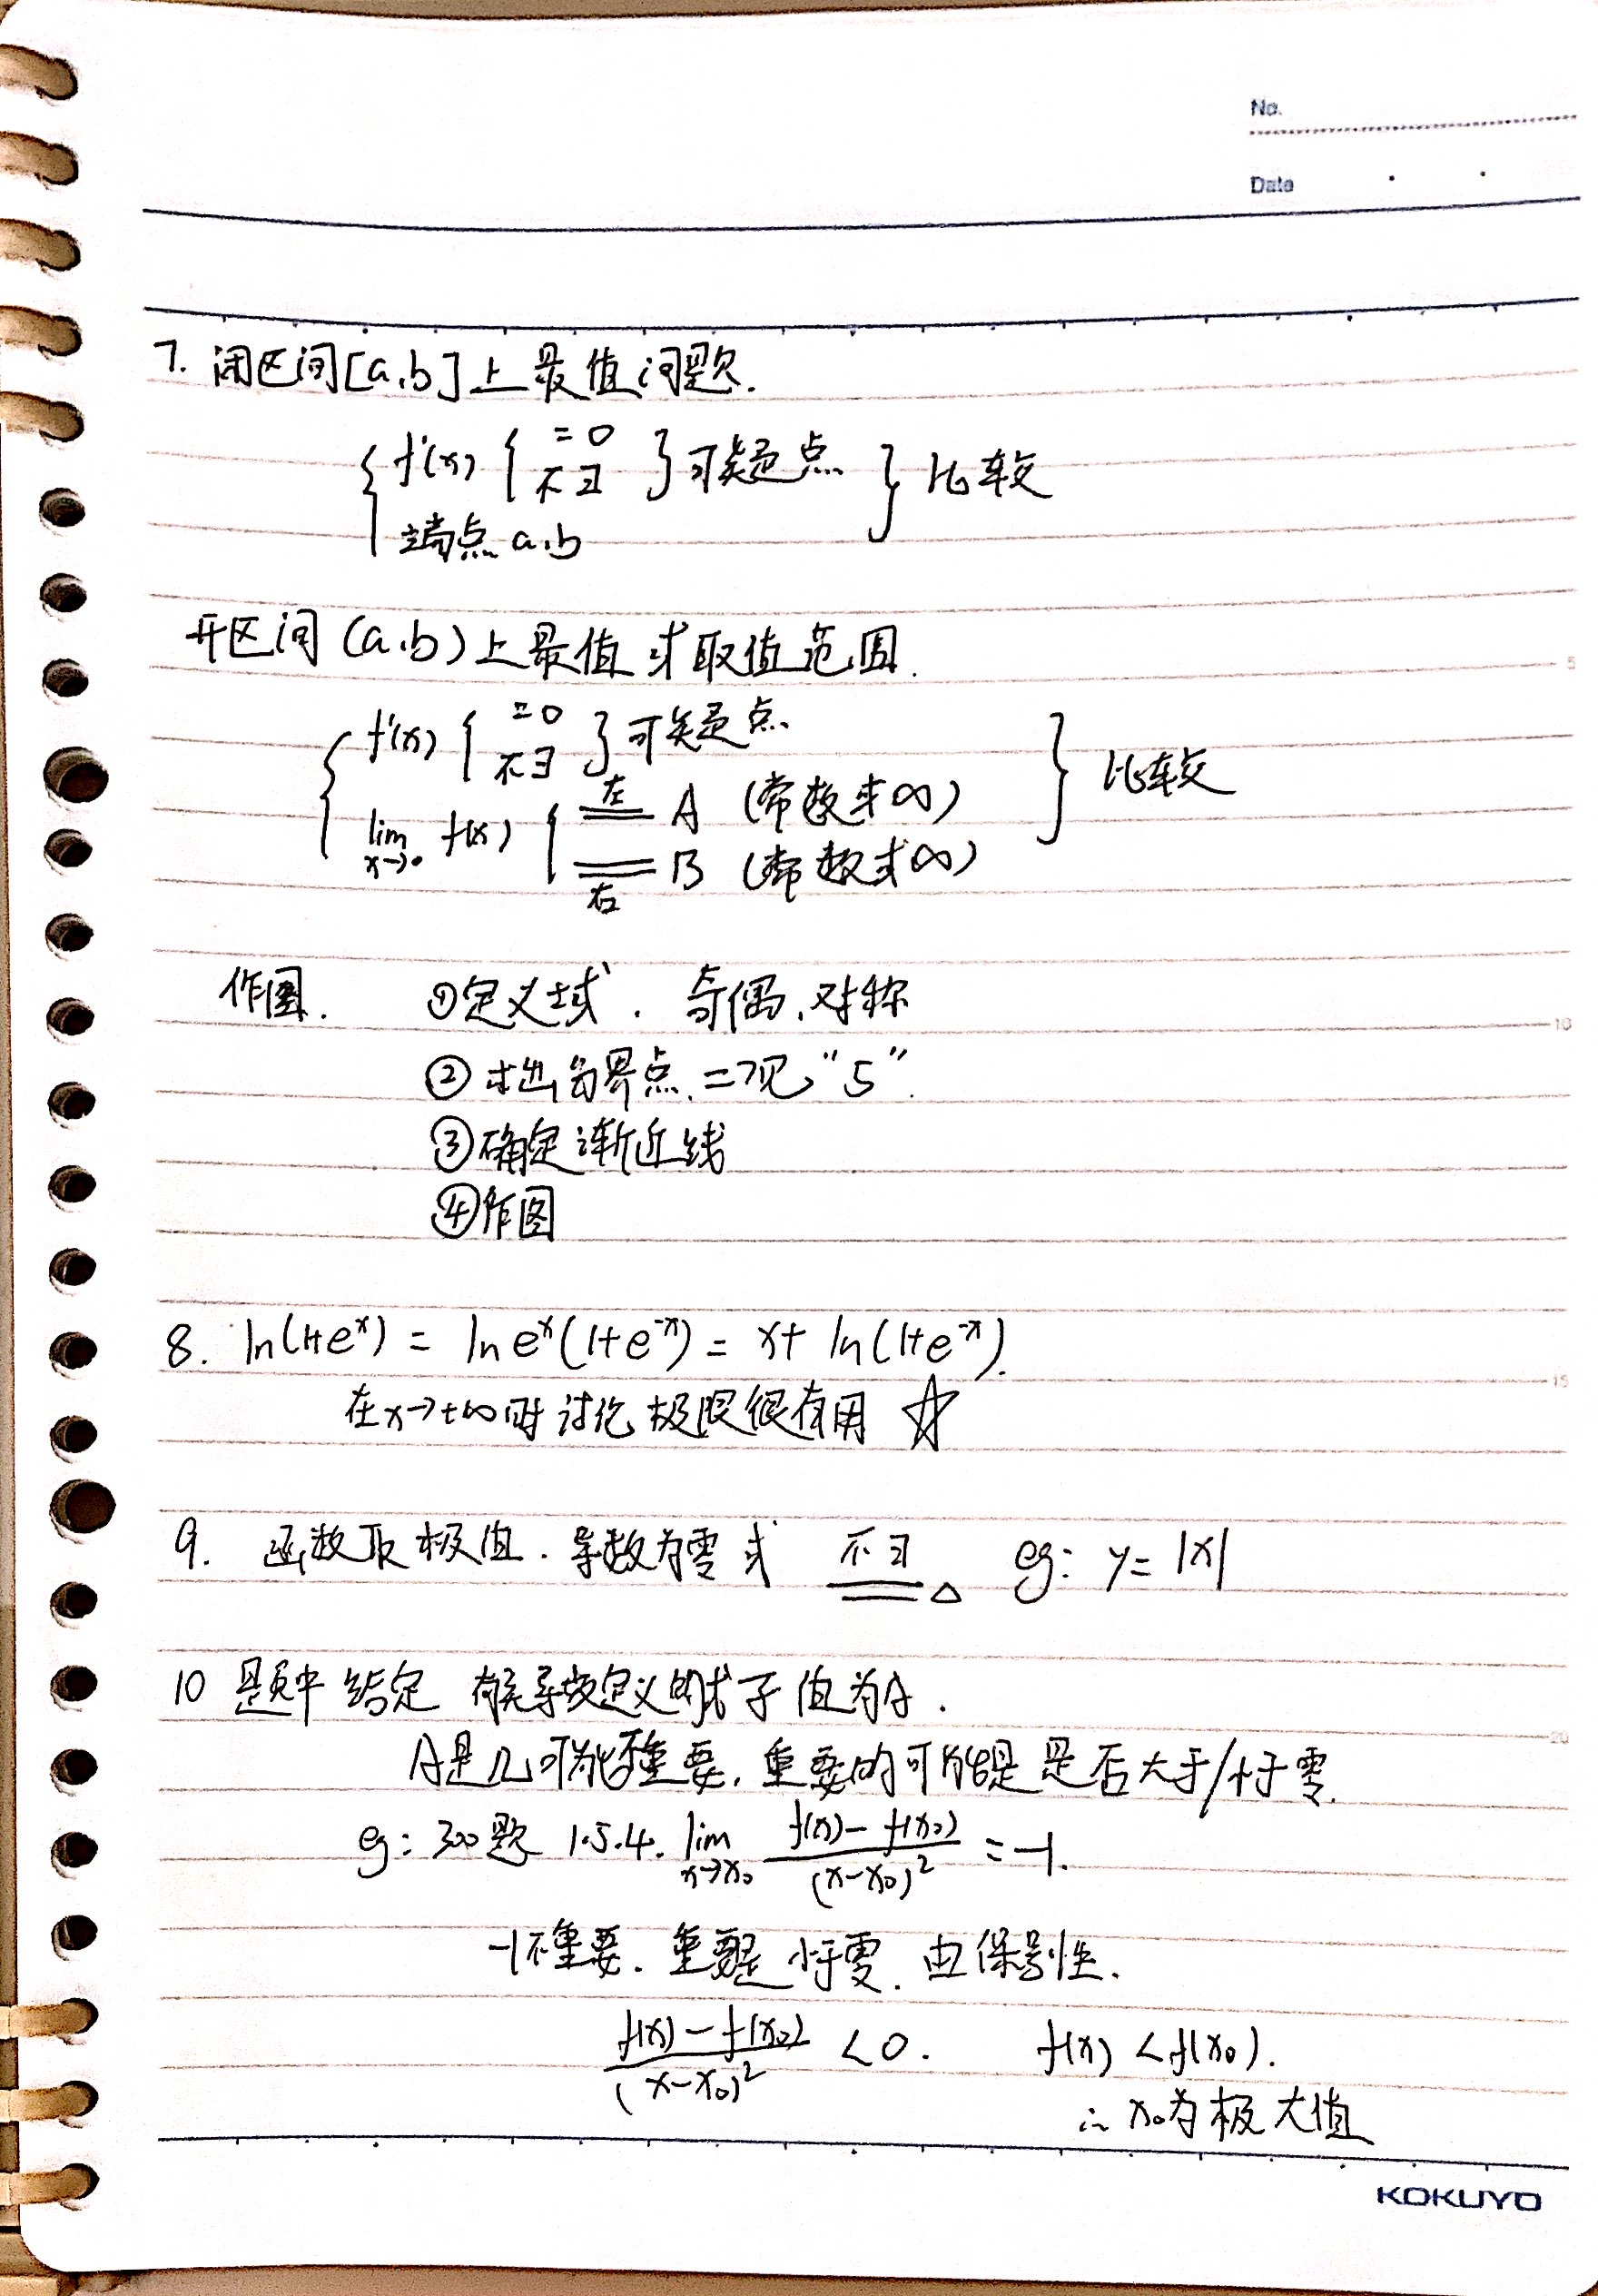 No.
Date
7. 闭区间[a,b]上最值问题.
{ f'(x) { =0 不∃ } 可疑点 } 比较
端点 a,b
开区间 (a,b) 上最值或取值范围.
{ f'(x) { =0 不∃ } 可疑点 } 比较
lim x→• f(x) { 左 = A (常数或∞)
右 = B (常数或∞)
作图. ①定义域. 奇偶,对称
②求出分界点. 二现 "5".
5
③确定渐近线
10
④作图
8. ln(1+eˣ) = ln eˣ(1+e⁻ˣ) = x+ ln(1+e⁻ˣ).
15
在x→+∞时讨论极限很有用 ☆
9. 函数取极值. 导数为零或 不∃ △ eg: y= |x|
10 题中给定 有关导数定义的式子值为A.
20
A是几可能不重要, 重要的可能是是否大于/小于零.
eg: 300题 1.5.4. lim x→x₀ (f(x)-f(x₀))/(x-x₀)² = -1.
-1不重要. 重要是小于零. 由保号性.
(f(x)-f(x₀))/(x-x₀)² <0. f(x) <f(x₀).
∴ x₀为极大值
KOKUYO